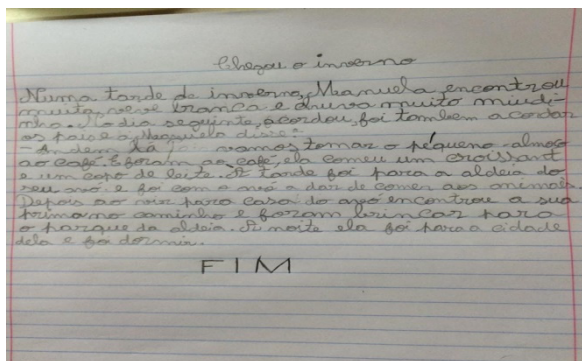 Chegou o inverno
Numa tarde de inverno, Manuela encontrou
muita neve branca e chuva muito miudi-
nha. No dia seguinte, acordou, foi também acordar
os pais e a Manuela disse:
- Andem lá vamos tomar o pequeno-almoço
ao café. E foram ao café, ela comeu um croissant
e um copo de leite. À tarde foi para a aldeia do
seu avô e foi com o avô a dar de comer aos animais.
Depois ao vir para casa do avô encontrou a sua
prima no caminho e foram brincar para
o parque da aldeia. À noite ela foi para a cidade
dela e foi dormir.
FIM